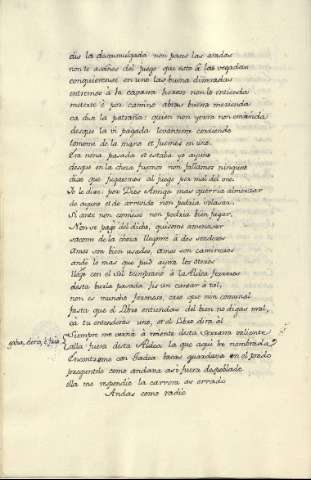 diz la descomulgada non pases las aradas
non te asañes del juego que esto á las vegadas
conquierense en uno las buena dineradas
entremos à la cabaña Ferruzo non lo entienda
meterte è por camino abras buena merienda
ca dia la patraña: quien non yerra non emienda
desque la vi pagada levantéme corriendo
tomome de la mano et fuemos en uno
Era nona pasada et estaba yo ayuno
desque en la choza fuymos non fallamos ninguno
dixo que jugasemos al juego por mal de uno.
Yo le dixe: por Dios Amiga mas querria almorzar
de ayuno et de arrecido non podria solazar
Si ante non comiese non podria bien jugar.
Non se pagó del dicho, quisome amenazar
sacóme de la choza llegóme à dos senderos
Amos son bien usados, amos son camineros
andé lo mas que pud ayna los oteros
llegé con el sol temprano à la Aldea ferreros
desta burla pasada fis un cantar à tal,
non es mucho fermoso, creo que nin comunal
fasta que el libro entiendas del bien no digas mal,
ca tu entenderàs uno, et el libro dira àl
Siempre me verná à miente desta serrana valiente
gaba, dera, è fria alla fuera desta Aldea la que aqui he nombrado
Encontrème con Gadea bacas guardava en el prado
preguntele como andaba asi fuera de poblado
ella me respondió la carrera as errado
Andas como radio